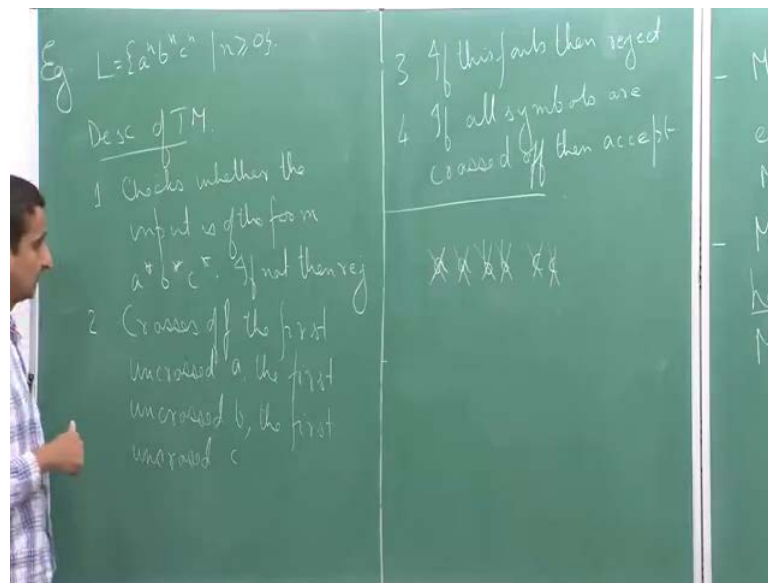 Eg. L = {aⁿbⁿcⁿ | n ≥ 0}.
Desc of TM.
1 Checks whether the
input is of the form
a*b*c*. If not then rej
2 Crosses off the first
uncrossed a, the first
uncrossed b, the first
uncrossed c
3 If this fails then reject
4 If all symbols are
crossed off then accept
a a b b c c
- M
e
M
- M
h
M